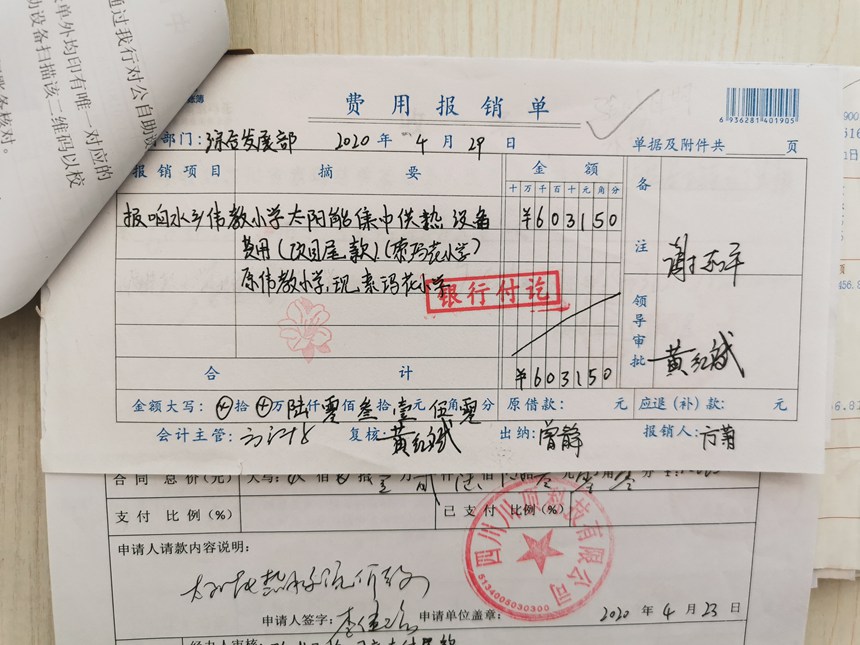 通过我行对公自助设
单外均印有唯一对应的
助设备扫描该二维码以校
账务核对。
费用报销单
6936281401905
部门：综合发展部 2020年4月29日 单据及附件共 页
报销项目 摘要 金额 备注
十万千百十元角分
报响水乡伟教小学太阳能集中供热设备 ¥603150
费用(项目尾款)(索玛花小学)
原伟教小学,现索玛花小学
银行付讫
谢
领导审批 黄红斌
合计 ¥603150
金额大写：⊗拾⊗万陆仟零佰叁拾壹元伍角零分 原借款： 元 应退(补)款： 元
会计主管： 复核：黄红斌 出纳：曾静 报销人：方菊
合同总价(元) 大写：
支付比例(%) 已支付比例(%)
申请人请款内容说明：
申请人签字： 申请单位盖章： 2020年4月23日
科技有限公司
5134008030300
经办人审核：